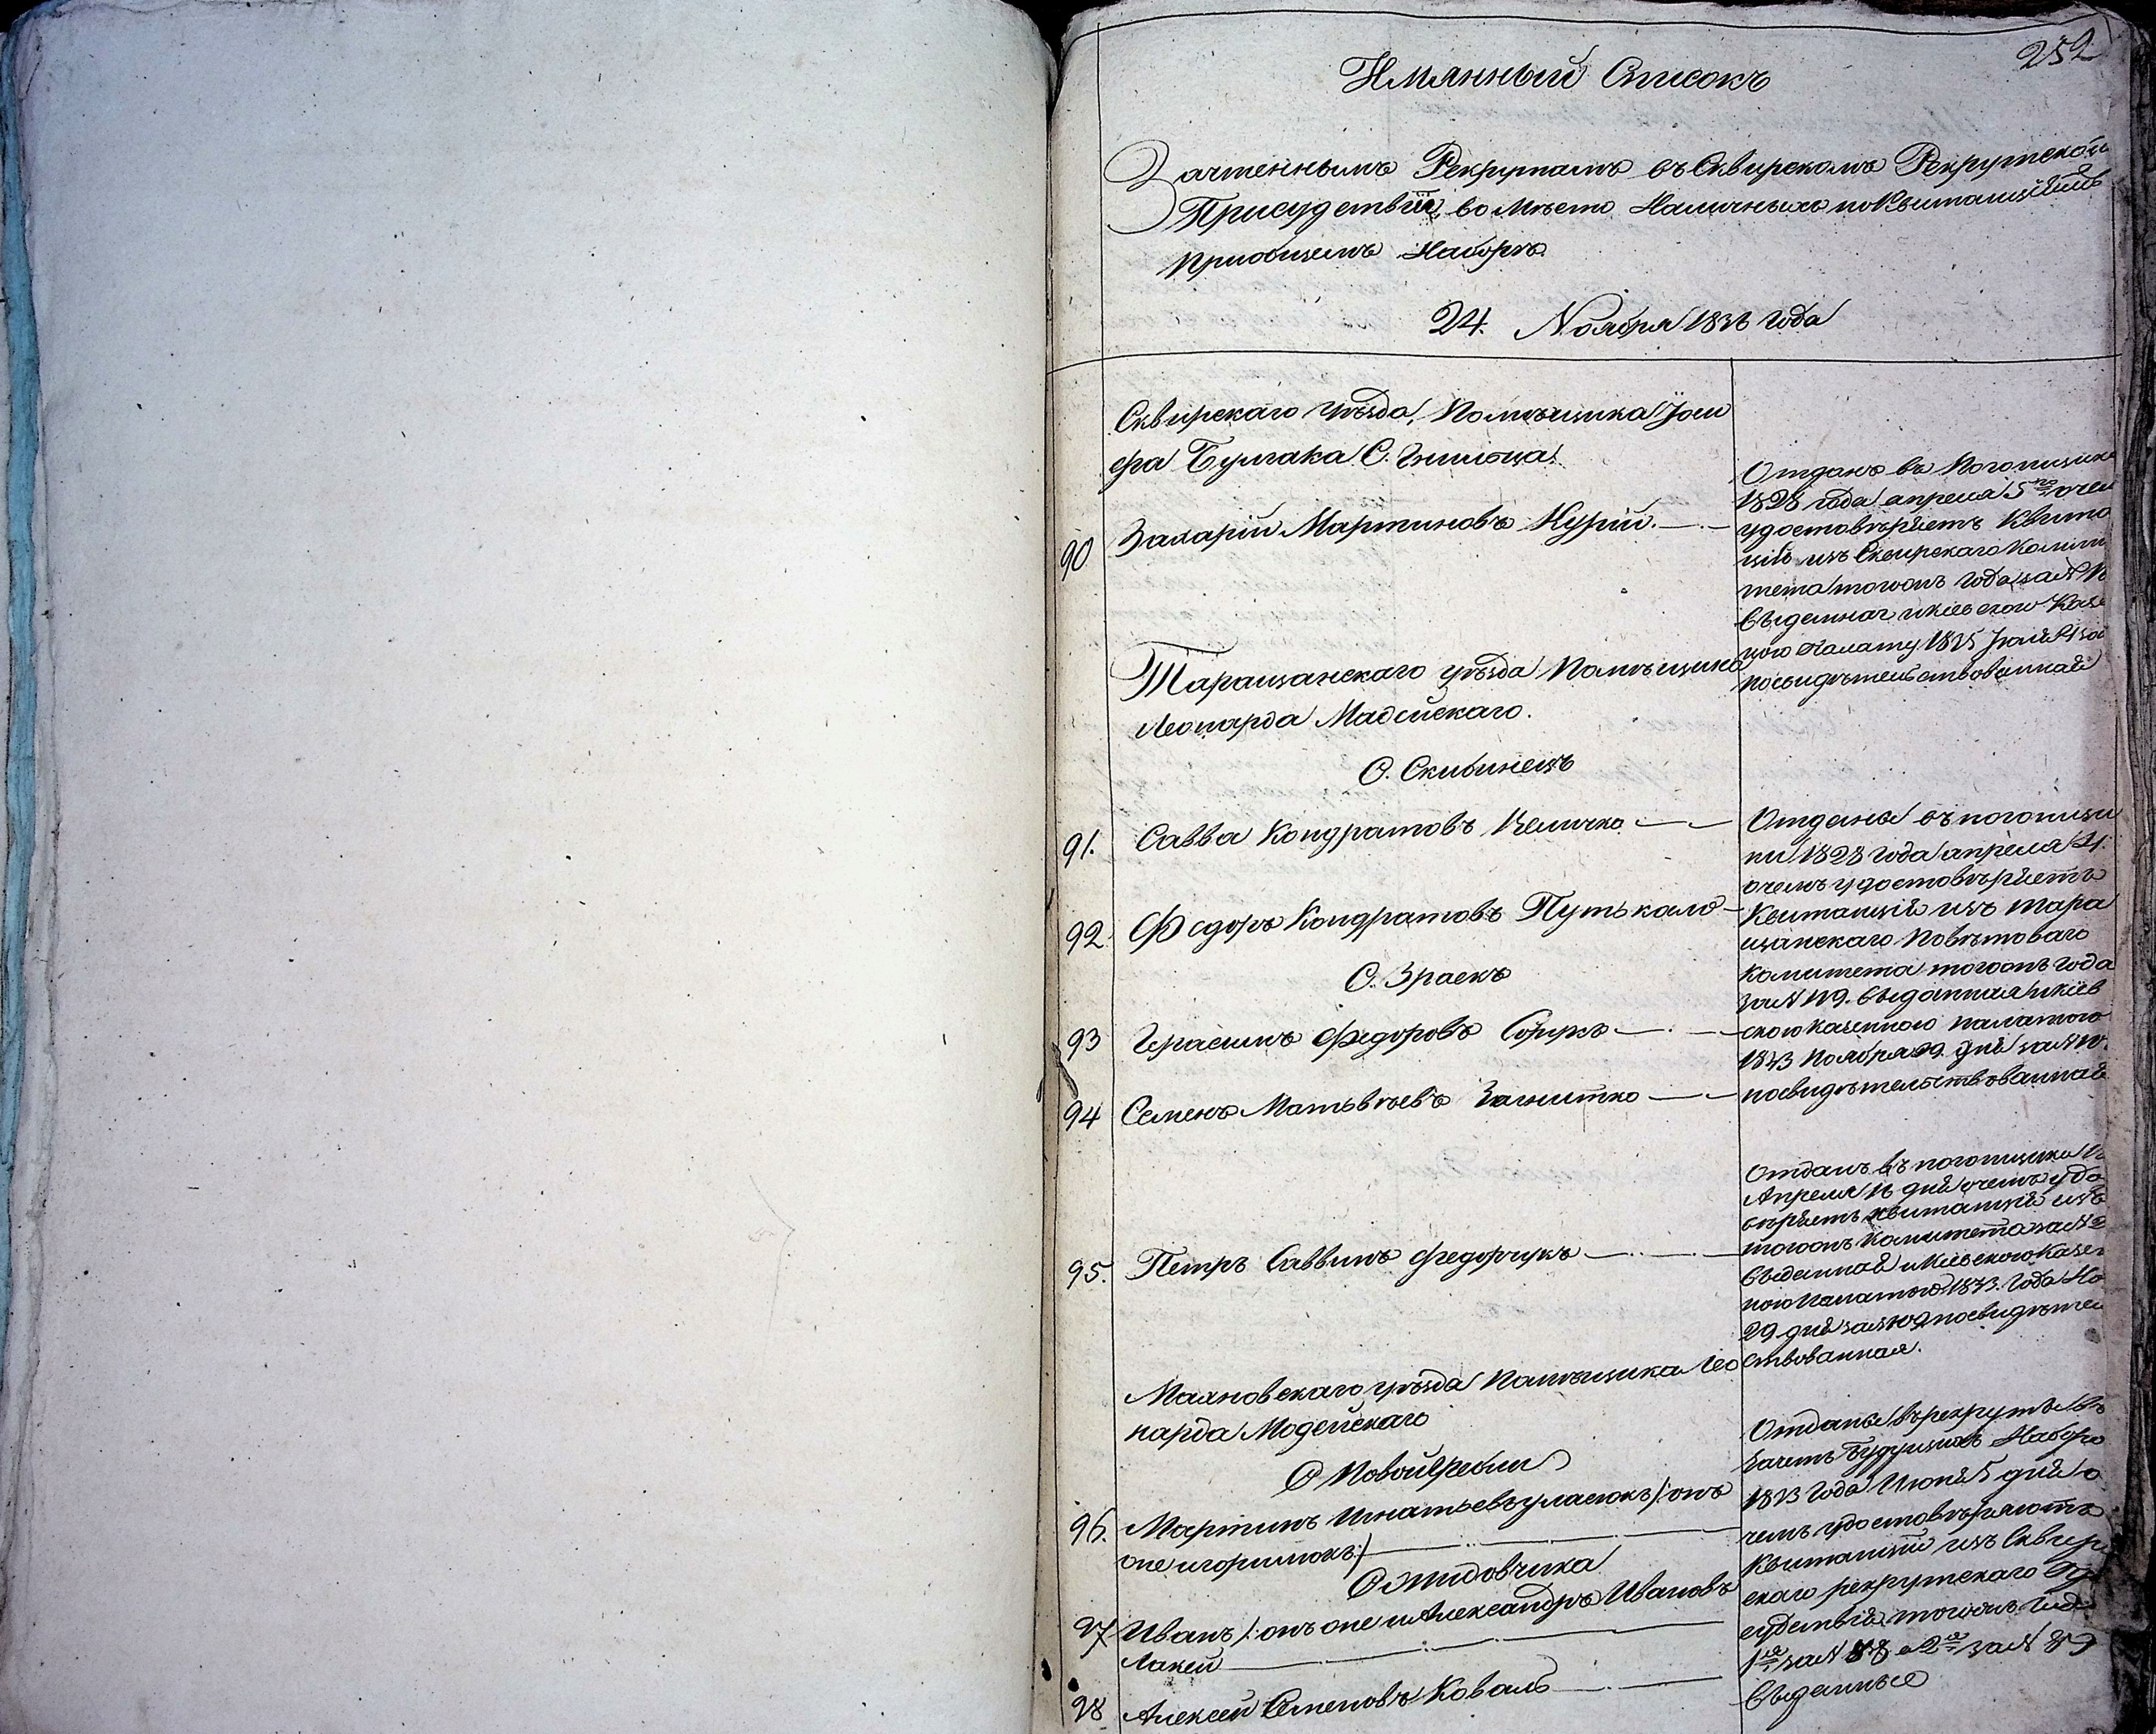 252
Имянный Списокъ
Зачтеннымъ Рекрутамъ въ Сквирскомъ Рекрутской
Присудствіи во мѣсто Наличныхъ по Квитанціямъ
приобщемъ Наборѣ
24. Ноября 1836 года
Сквирскаго уѣзда, Помѣщика Іоси
фа Булгака С.
90 Захарій Мартиновъ Курій.
Отданъ въ Погопищика
1828 года апреля 5го очем
удостовѣряетъ Квита
ція изъ Сквирскаго Комит
тета тогожъ года за N
выденная икіевскою Казе
ною Палату 1835
посвидѣтельствованная
Таращанскаго уѣзда Помѣщика
Леонарда Мадейскаго.
С. Скибинецъ
91. Савва Кондратовъ Величко
92. Федоръ Кондратовъ Путькало
С. Зраекъ
93 Герасимъ Федоровъ Сорукъ
94 Семенъ Матьвѣевъ Загнитко
Отданы въ погопищи
ни 1828 года апреля 21.
очемъ удостовѣряетъ
Квитанція изъ Тара
щанскаго Повѣтоваго
Комитета тогожъ года
за N 119. выданная икіев
скою казенною палатою
1833 Ноября 29. дня за N
посвидѣтельствованная
95. Петръ Саввинъ Федорчукъ
Отданъ въ погопищика
Апреля 16 дня очемъ удо
вѣряетъ квитанція изъ
тогожъ Комитета за N 2
выденная икіевскою Казен
ною Палатою 1833. года Но
29 дня за N 109 посвидѣтел
ствованная.
Махновскаго уѣзда Помѣщика Лео
нарда Модейскаго
С Новой Гребли
96. Мартинъ Игнатьевъ уласюкъ /: онъ
опе игоринюкъ :/
С Жидовчика
97 Иванъ /: онъ опе и Александръ Ивановъ
Лакей
98 Алексей Семеновъ Коваль
Отданы врекруты въ
Зачетъ Будущихъ Набора
1833 года Июня 5 дня о
чемъ удостовѣряютъ
Квитанціи изъ Сквир
скаго рекрутскаго
судствія тогожъ года
1я за N 88 а 2я за N 89
выденные